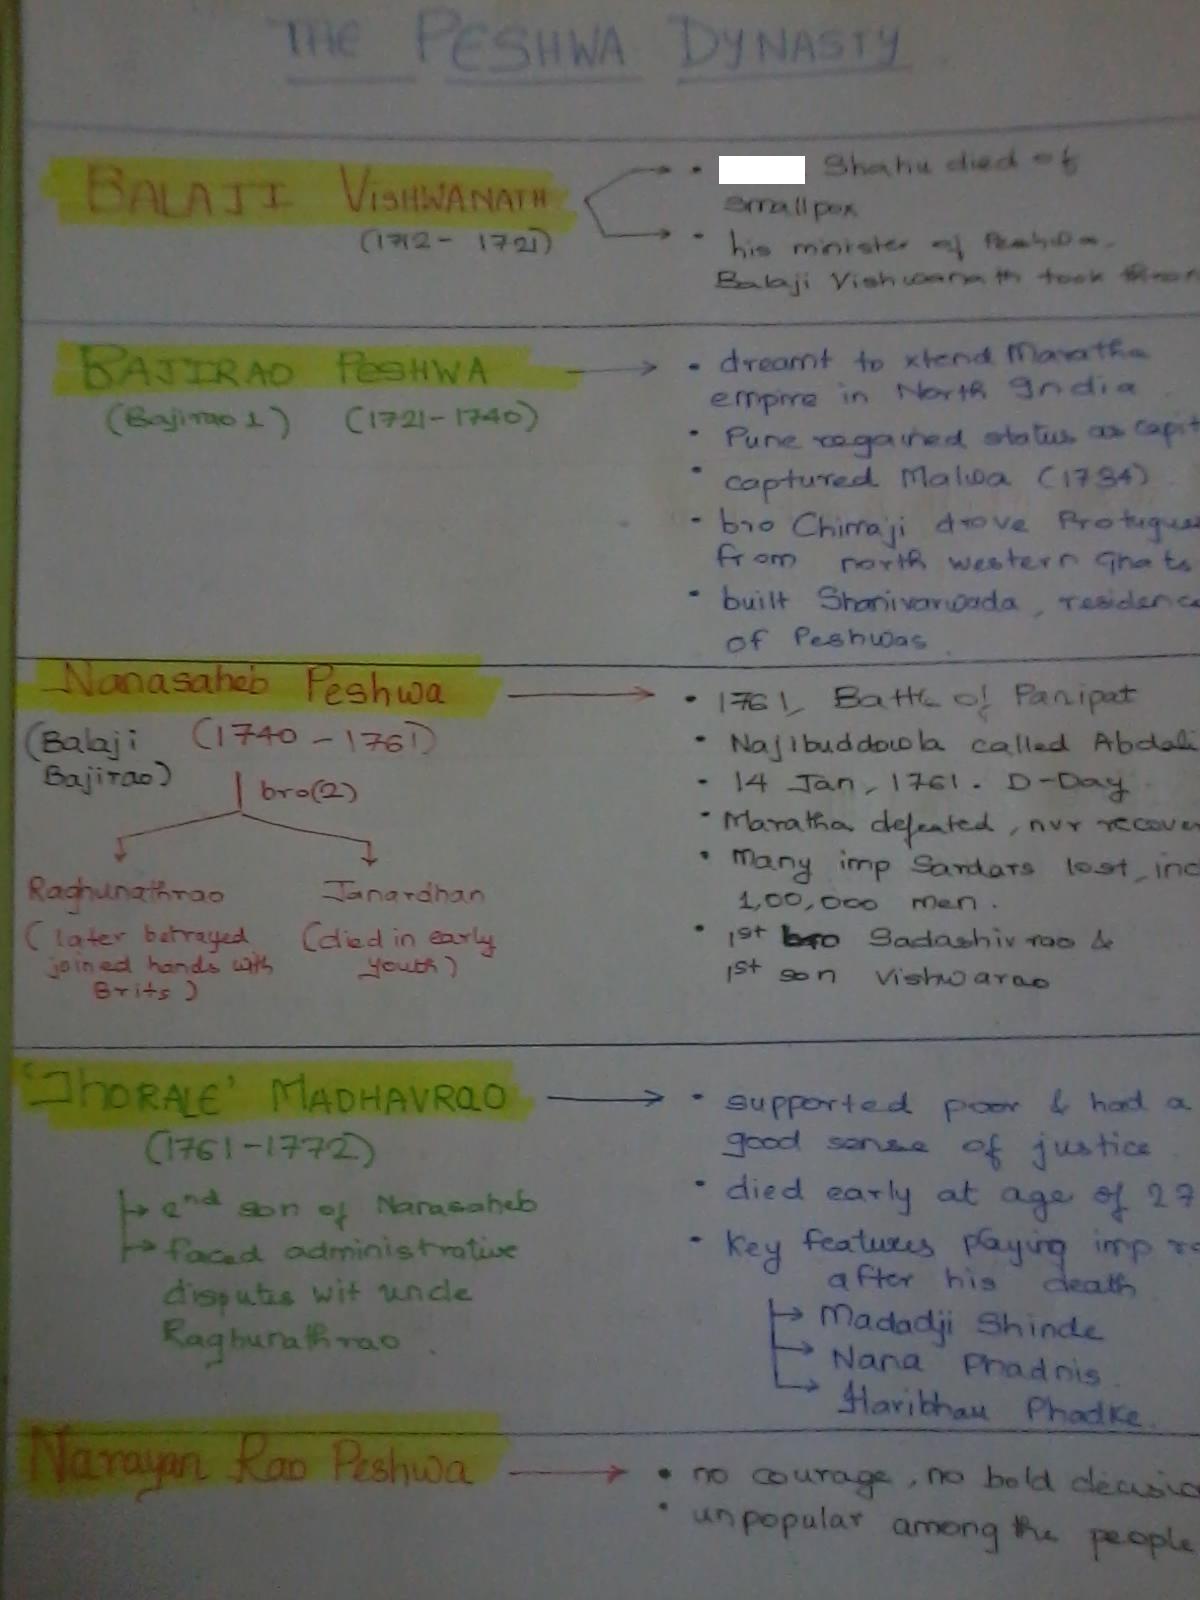 THE PESHWA DYNASTY
BALAJI VISHWANATH
(1712 - 1721)
• Shahu died of
smallpox
• his minister of Peshwa.
Balaji Vishwanath took
BAJIRAO PESHWA
(Bajirao 1) (1721-1740)
• dreamt to xtend Maratha
empire in North India
• Pune regained status as capit
• captured Malwa (1734)
• bro Chimaji drove Protugues
from north western Ghats
• built Shanivarwada, residenc
of Peshwas.
Nanasaheb Peshwa
(Balaji
Bajirao)
(1740 - 1761)
bro(2)
Raghunathrao
(later betrayed
joined hands with
Brits)
Janardhan
(died in early
youth)
• 1761, Battle of Panipat
• Najibuddowla called Abdali
• 14 Jan, 1761. D-Day
• Maratha defeated, nvr recover
• Many imp Sardars lost, inc
1,00,000 men.
• 1st bro Sadashivrao &
1st son Vishwarao
'Thorale' MADHAVRAO
(1761-1772)
2nd son of Nanasaheb
faced administrative
disputes wit uncle
Raghunathrao.
• supported poor & had a
good sense of justice
• died early at age of 27
• Key features playing imp ro
after his death
Madadji Shinde
Nana Phadnis.
Haribhau Phadke.
Narayan Rao Peshwa
• no courage, no bold decisio
• unpopular among the people